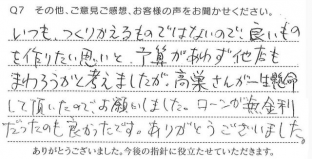 Q7 その他、ご意見ご感想、お客様の声をお聞かせください。
いつも、つくりかえるものではないので、良いもの
を作りたい思いと、予算があわず他店も
まわろうかと考えましたが、高栄さんが一生懸命
して頂いたのでお願いしました。ローンが無金利
だったのも良かったです。ありがとうございました。
ありがとうございました。今後の指針に役立たせていただきます。